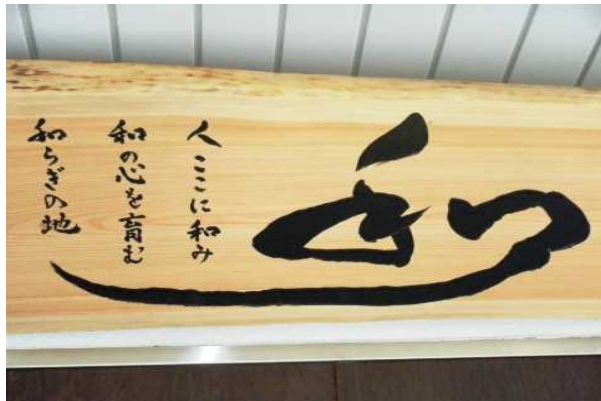 和
人ここに和み
和の心を育む
和らぎの地